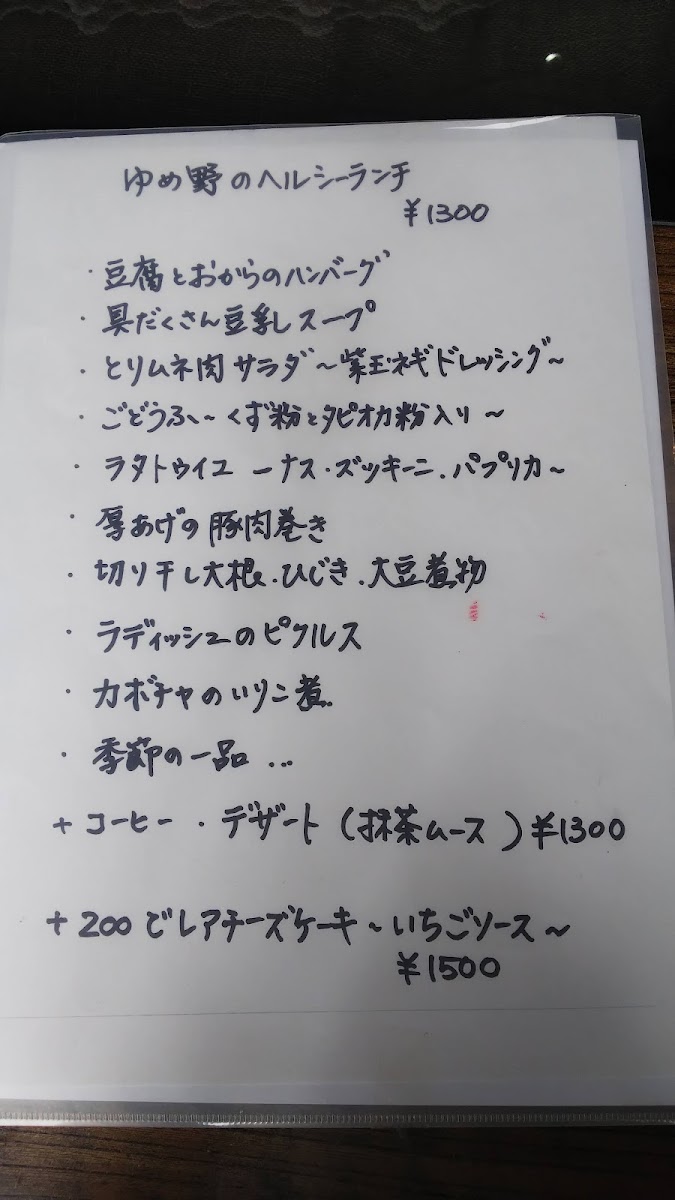 ゆめ野のヘルシーランチ
¥1300
・豆腐とおからのハンバーグ
・具だくさん豆乳スープ
・とりムネ肉サラダ～紫玉ネギドレッシング～
・ごどうふ～くず粉とタピオカ粉入り～
・ラタトゥイユ ーナス・ズッキーニ、パプリカ～
・厚あげの豚肉巻き
・切り干し大根、ひじき、大豆煮物
・ラディッシュのピクルス
・カボチャのいりこ煮
・季節の一品 …
+ コーヒー ・ デザート (抹茶ムース) ¥1300
+200でレアチーズケーキ～いちごソース～
¥1500